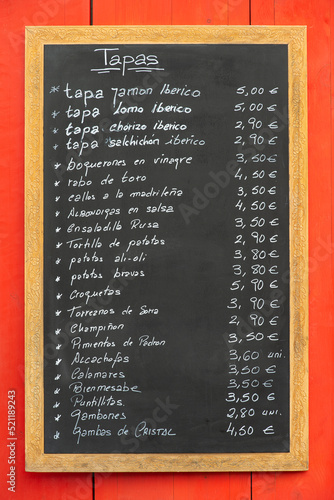 Tapas
* tapa Jamon Iberico 5,00 €
* tapa lomo Iberico 5,00 €
* tapa chorizo iberico 2,90 €
* tapa salchichón iberico 2,90 €
* boquerones en vinagre 3,50 €
* rabo de toro 4,50 €
* callos a la madrileña 3,50 €
* Albondigas en salsa 4,50 €
* Ensaladilla Rusa 3,50 €
* Tortilla de patatas 2,90 €
* patatas ali-oli 3,80 €
* patatas bravas 3,80 €
* Croquetas 5,90 €
* Torreznos de Soria 3,90 €
* Champiñon 2,90 €
* Pimientos de Padron 3,50 €
* Alcachofas 3,60 uni.
* Calamares 3,50 €
* Bienmesabe 3,50 €
* Puntillitas 3,50 €
* gambones 2,80 uni.
* gambas de CRISTAL 4,50 €
Adobe Stock
521189243